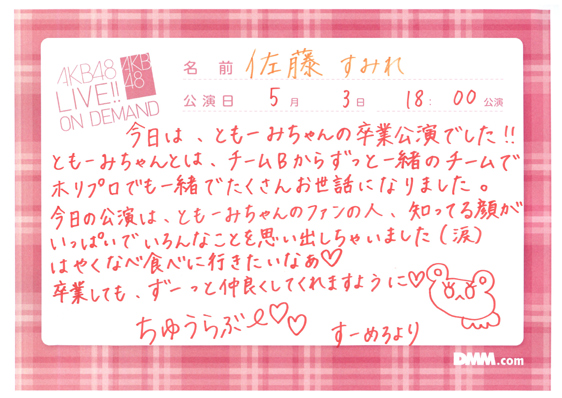 AKB48
LIVE!!
ON DEMAND
AKB
48
名 前 佐藤 すみれ
公演日 5月 3日 18:00公演
今日は、ともーみちゃんの卒業公演でした!!
ともーみちゃんとは、チームBからずっと一緒のチームで
ホリプロでも一緒でたくさんお世話になりました。
今日の公演は、ともーみちゃんのファンの人、知ってる顔が
いっぱいでいろんなことを思い出しちゃいました(涙)
はやくなべ食べに行きたいなあ♡
卒業しても、ずーっと仲良くしてくれますように♡
ちゅうらぶ〜♡♡
すーめろより
DMM.com